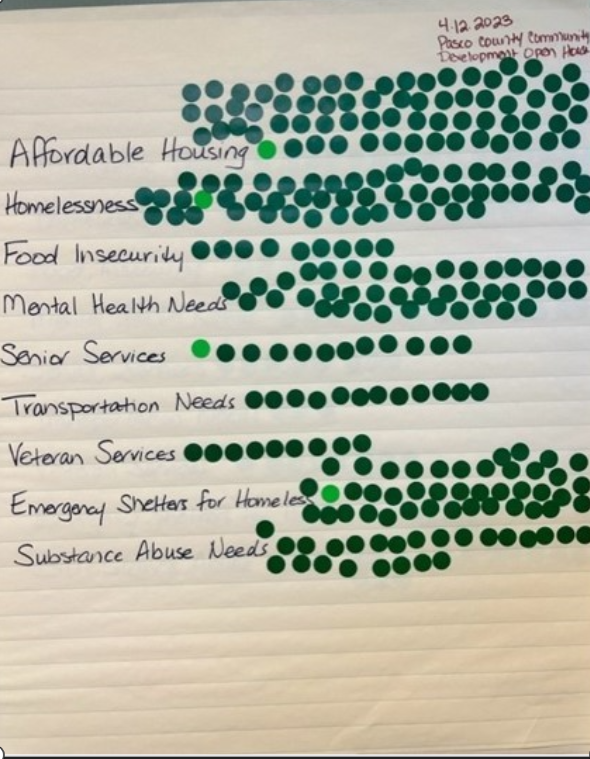 4.12.2023
Pasco County Community
Development Open House
Affordable Housing
Homelessness
Food Insecurity
Mental Health Needs
Senior Services
Transportation Needs
Veteran Services
Emergency Shelters for Homeless
Substance Abuse Needs